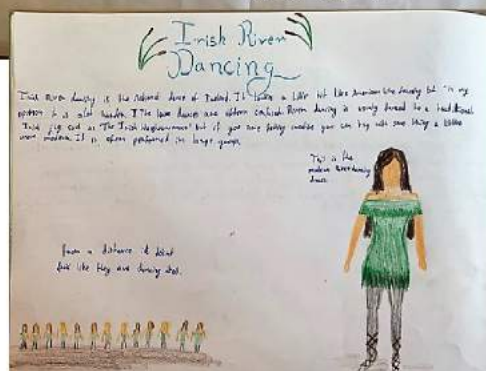 Irish River
Dancing
Irish River dancing is the national dance of Ireland. It looks a little bit like American line dancing but in my
opinion it is a lot harder. The two dances are often confused. River dancing is usually danced to a traditional
Irish jig such as "The Irish Washerwoman" but if you are feeling you can try with some thing a little
more modern. It is often performed in large groups.
This is the
modern River dancing
dress.
From a distance it doesnt
look like they are dancing atal.